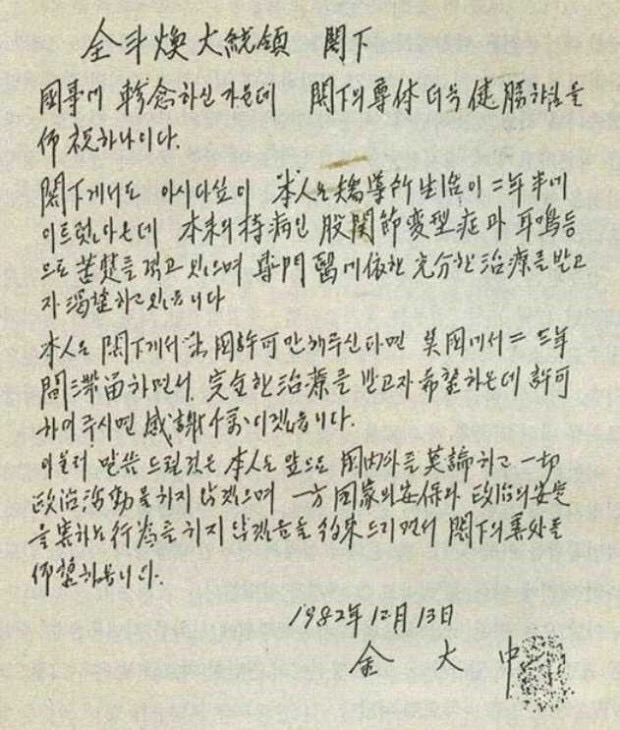 全斗煥大統領 閣下
國事에 軫念하신 가운데 閣下의 尊体 더욱 健勝하심을
仰祝하나이다.
閣下께서도 아시다싶이 本人은 矯導所生活이 二年半에
이르렀아온데 本来의 持病인 股関節変型症과 耳鳴등
으로 苦楚를 겪고 있으며 専門醫에 依한 充分한 治療를 받고
자 渴望하고 있읍니다
本人은 閣下께서 出國許可만 해주신다면 美國에서 二三年
間滞留하면서 完全한 治療를 받고자 希望하온데 許可
하여주시면 感謝千萬이겠읍니다.
아울러 말씀드릴것은 本人은 앞으로 國内外를 莫論하고 一切
政治活動을 하지 않겠으며 一方 國家의 安保와 政治의 安定
을 害하는 行為를 하지 않겠음을 約束드리면서 閣下의 善処를
仰望하옵니다.
1982年 12月 13日
金大中